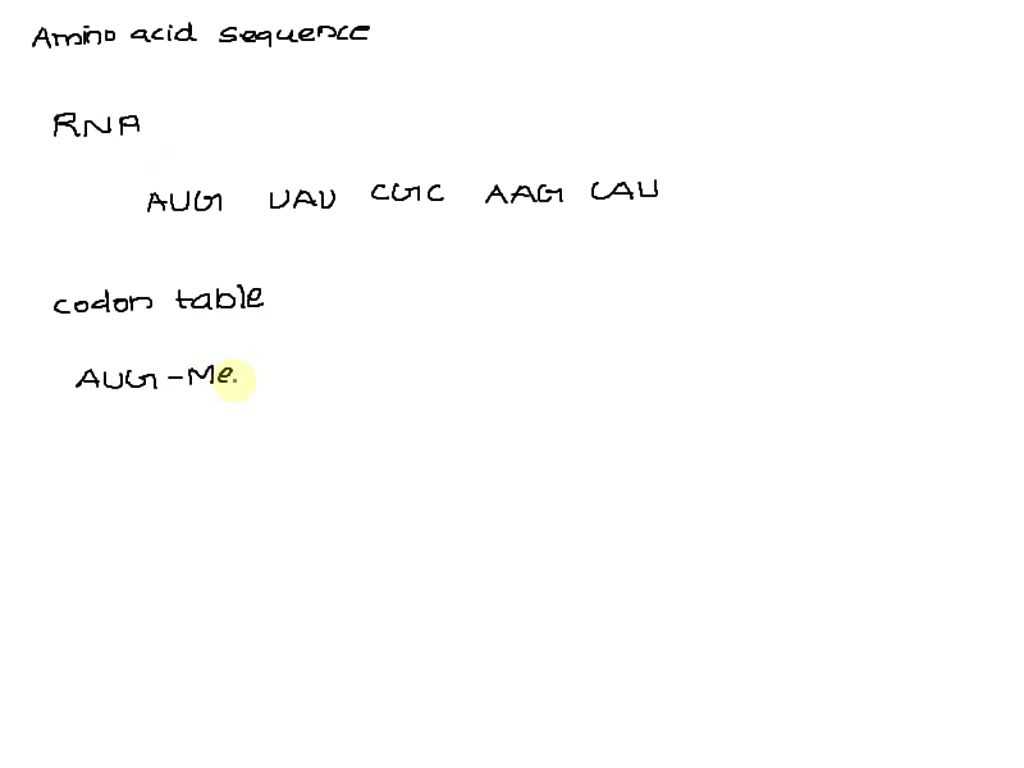 Amino acid sequence
RNA
AUG UAU CGC AAG CAU
codon table
AUG - Me.